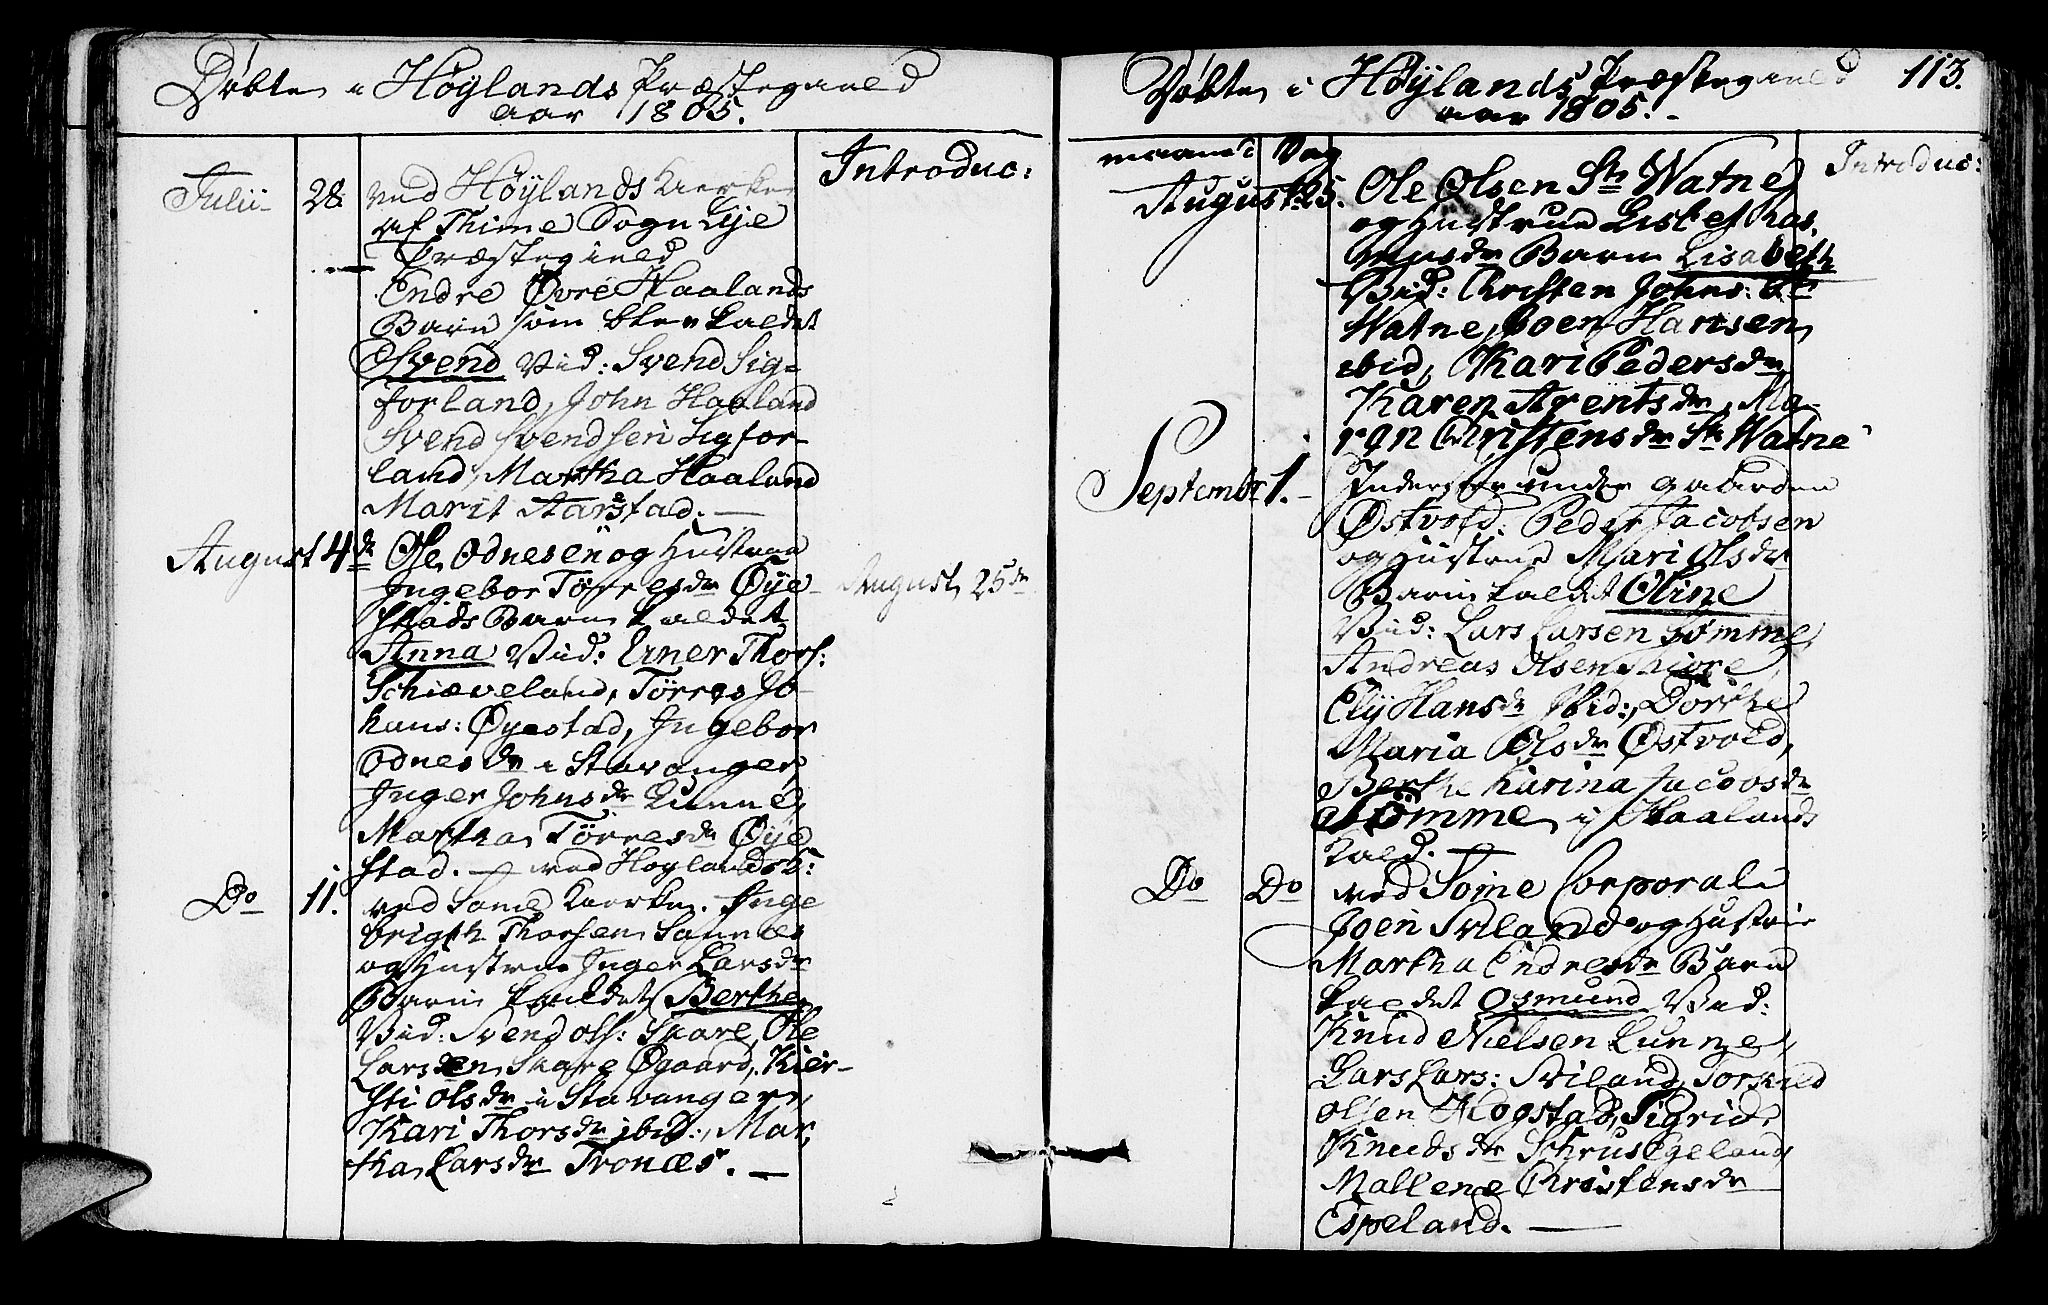 Døbte i Høylands Præstegield
aar 1805.
Introduc:
Julii 28. ved Høylands Kierke
af Thime Sogn Lye
Præstegield
Endre Øvre Haalands
Barn som blev kaldet
Svend Vid: Svend Sig-
forland, John Haaland
Svend Svendsen Sigfor-
land, Martha Haaland
Marit Aarstad. —
August 4de Ole Odnesen og Hustrue
Ingebor Törresdr Øye-
stads Barn kaldet
August 25de
Anna Vid: Erner Thors:
Schiæveland, Törres Jo-
hans: Øyestad, Ingebor
Odnesdr i Stavanger,
Inger Johnsdr Lunne,
Martha Törresdr Øye
stad. — ved Høylands K:
Do 11. ved Same Kierke. Inge
brigth Thorsen Somnes
og Hustrue Inger Larsdr
Barn kaldet Berthe
Vid: Svend Ols: Skare, Ole
Larsen Skare Øgaard, Kier-
sti Olsdr i Stavanger,
Kari Thorsdr ibid:, Mar,
tha Larsdr Tronæs. —
Døbte i Høylands Præstegield 113.
aar 1805. -
maaned Dag
Introduc:
August 25. Ole Olsen St: Watne
og Hustrue Lisbet Ras,
musdr Barn Lisabeth
Vid: Christen Johns: St:
Watne, Joen Hansen
ibid, Kari Pedersdr
Karen Arentsdr, Ma-
ren Christensdr St: Watne
Septembr 1. - Inderster under gaarden
Østvold: Peder Jacobsen
og Hustrue Mari Olsdr
Barn kaldet Oline
Vid: Lars Larsen Sømme,
Andreas Olsen
Ely Hansdr ibid:, Dorthe
Maria Olsdr Østvold,
Berthe Karina Jacobsdr
Sömme i Haalands
Kald.
Do Do ved Same Corporal
Joen Sviland og Hustrue
Martha Endresdr Barn
kaldet Osmund Vid:
Knud Nielsen Lunne,
Lars Lars: Sviland, Torkild
Olsen Hogstad, Sigrid
Knudsdr Schrusegeland
Mallene Christensdr
Espeland. —